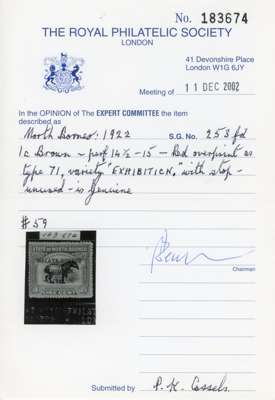 No. 183674
THE ROYAL PHILATELIC SOCIETY
LONDON
41 Devonshire Place
London W1G 6JY
Meeting of 11 DEC 2002
In the OPINION of The EXPERT COMMITTEE the item
described as
North Borneo: 1922 S.G. No. 253 fd
1c Brown - perf 14½ - 15 - Red overprint as
type 71, variety "EXHIBITION." with stop -
unused - is genuine
#59
STATE OF NORTH BORNEO
Chairman
Submitted by P. K. Cassels.